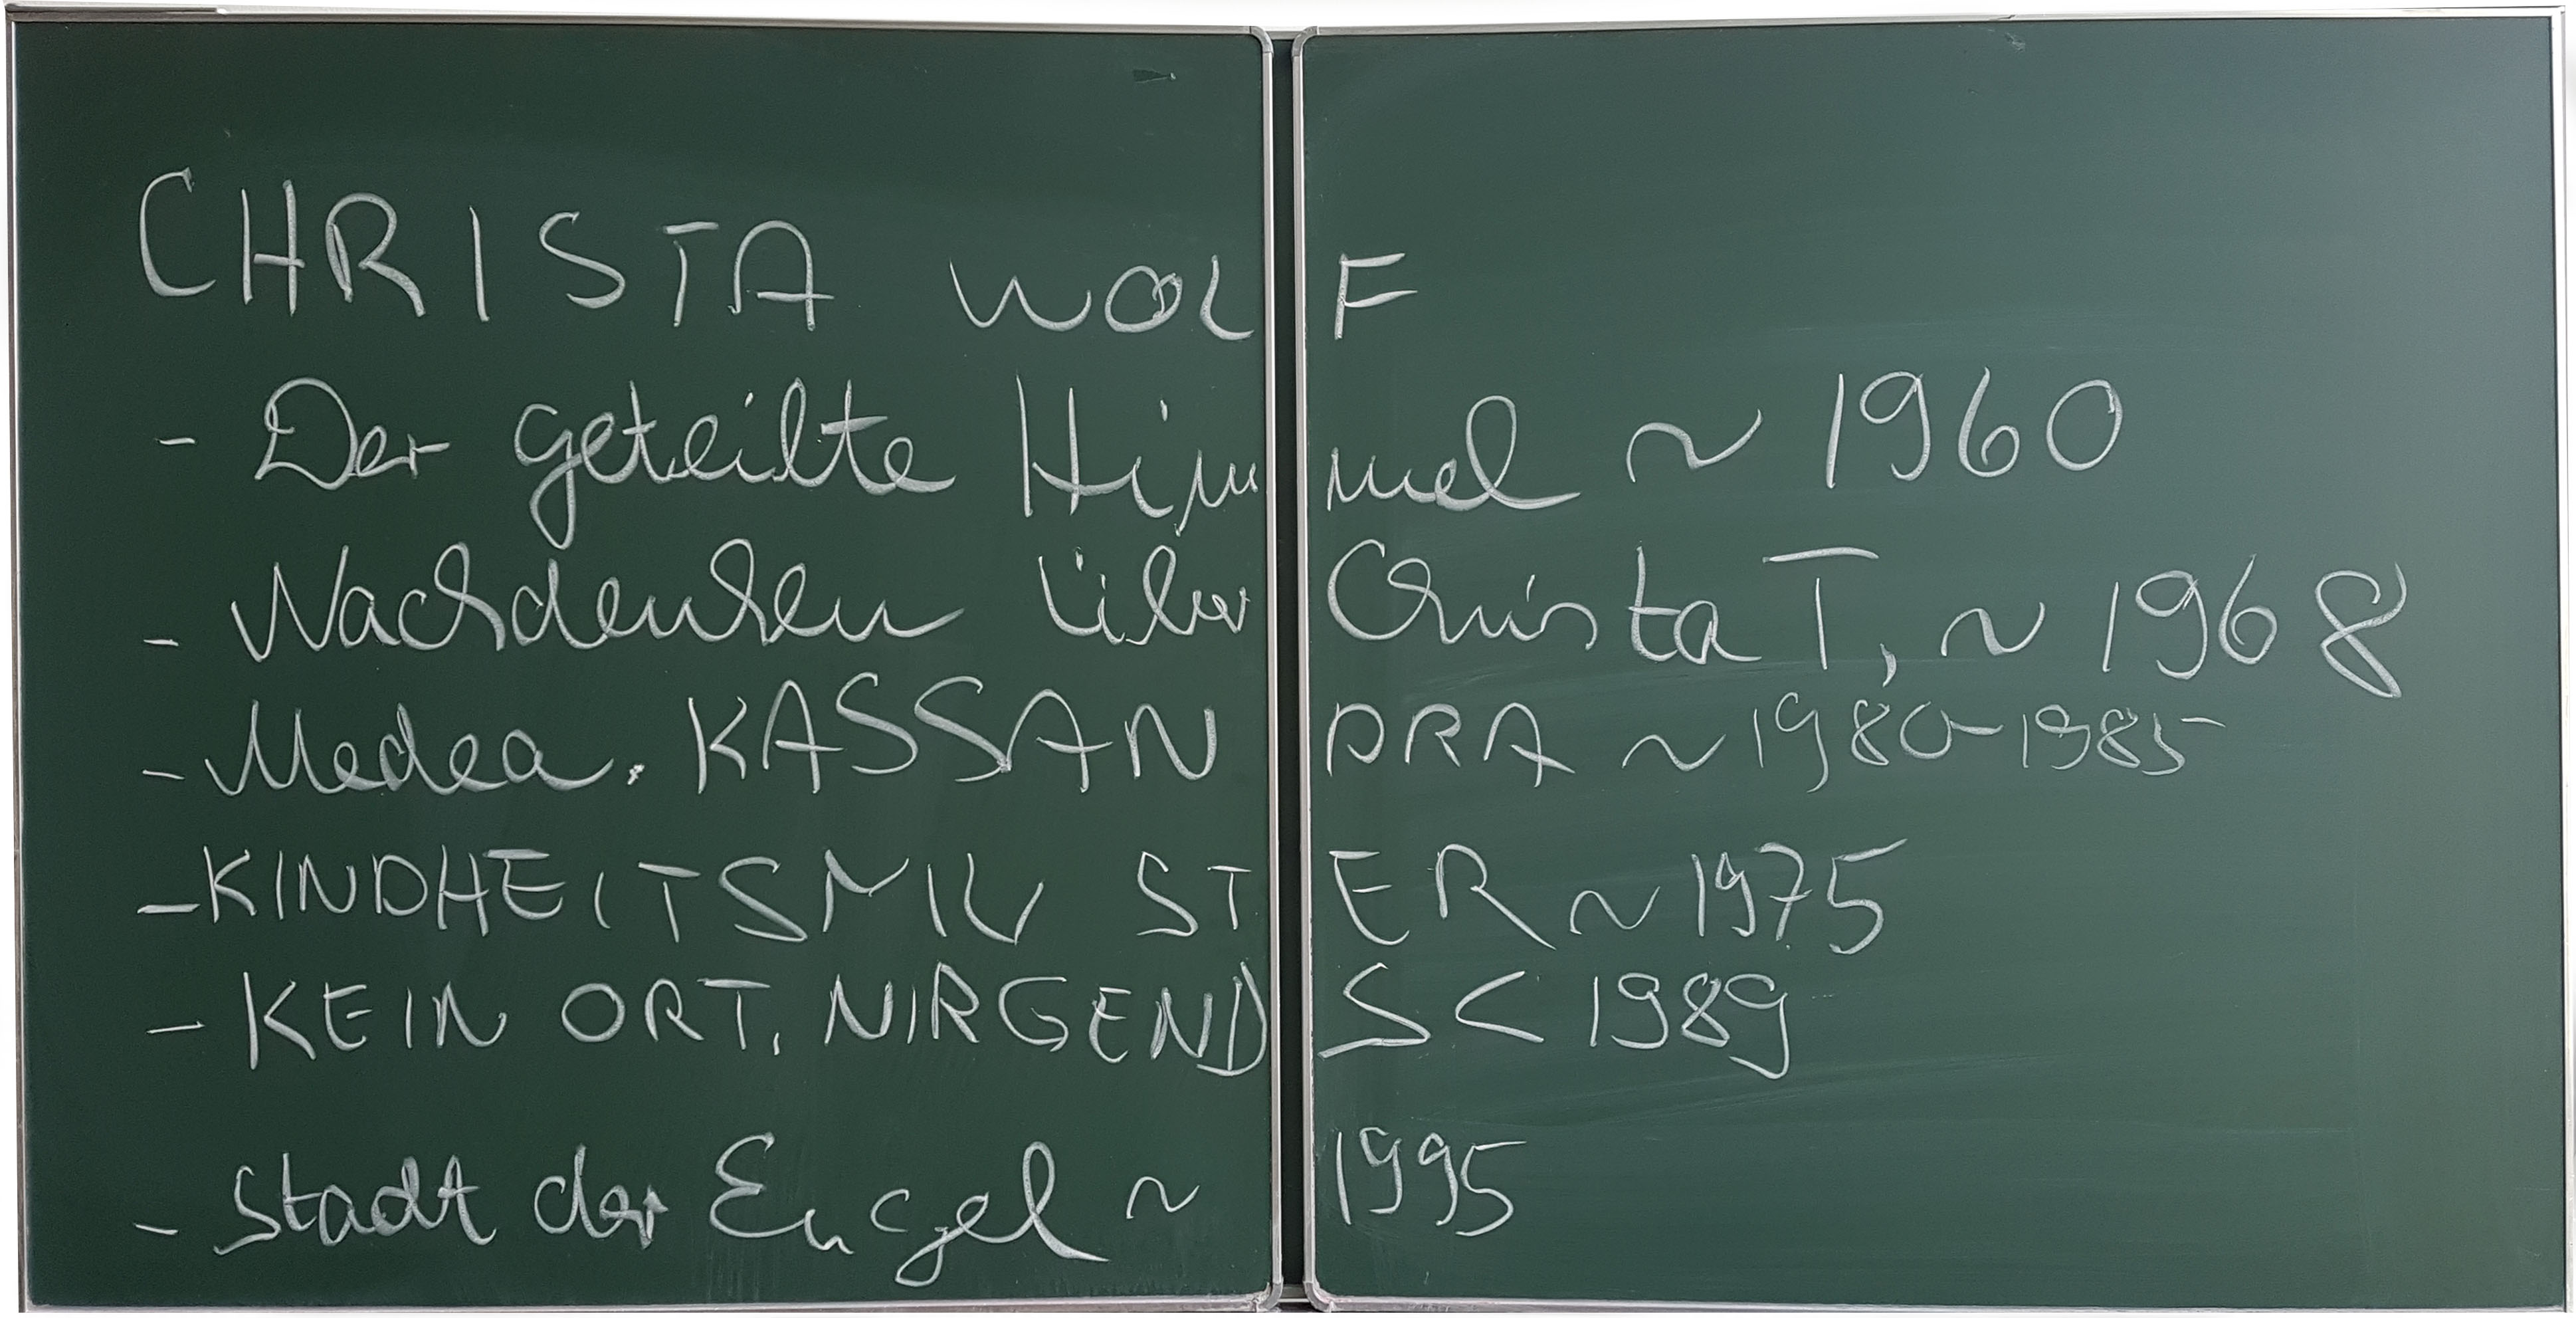 CHRISTA WOLF
- Der geteilte Himmel ~ 1960
- Nachdenken über Christa T, ~ 1968
- Medea. KASSANDRA ~ 1980-1985
- KINDHEITSMUSTER ~ 1975
- KEIN ORT. NIRGENDS < 1989
- Stadt der Engel ~ 1995